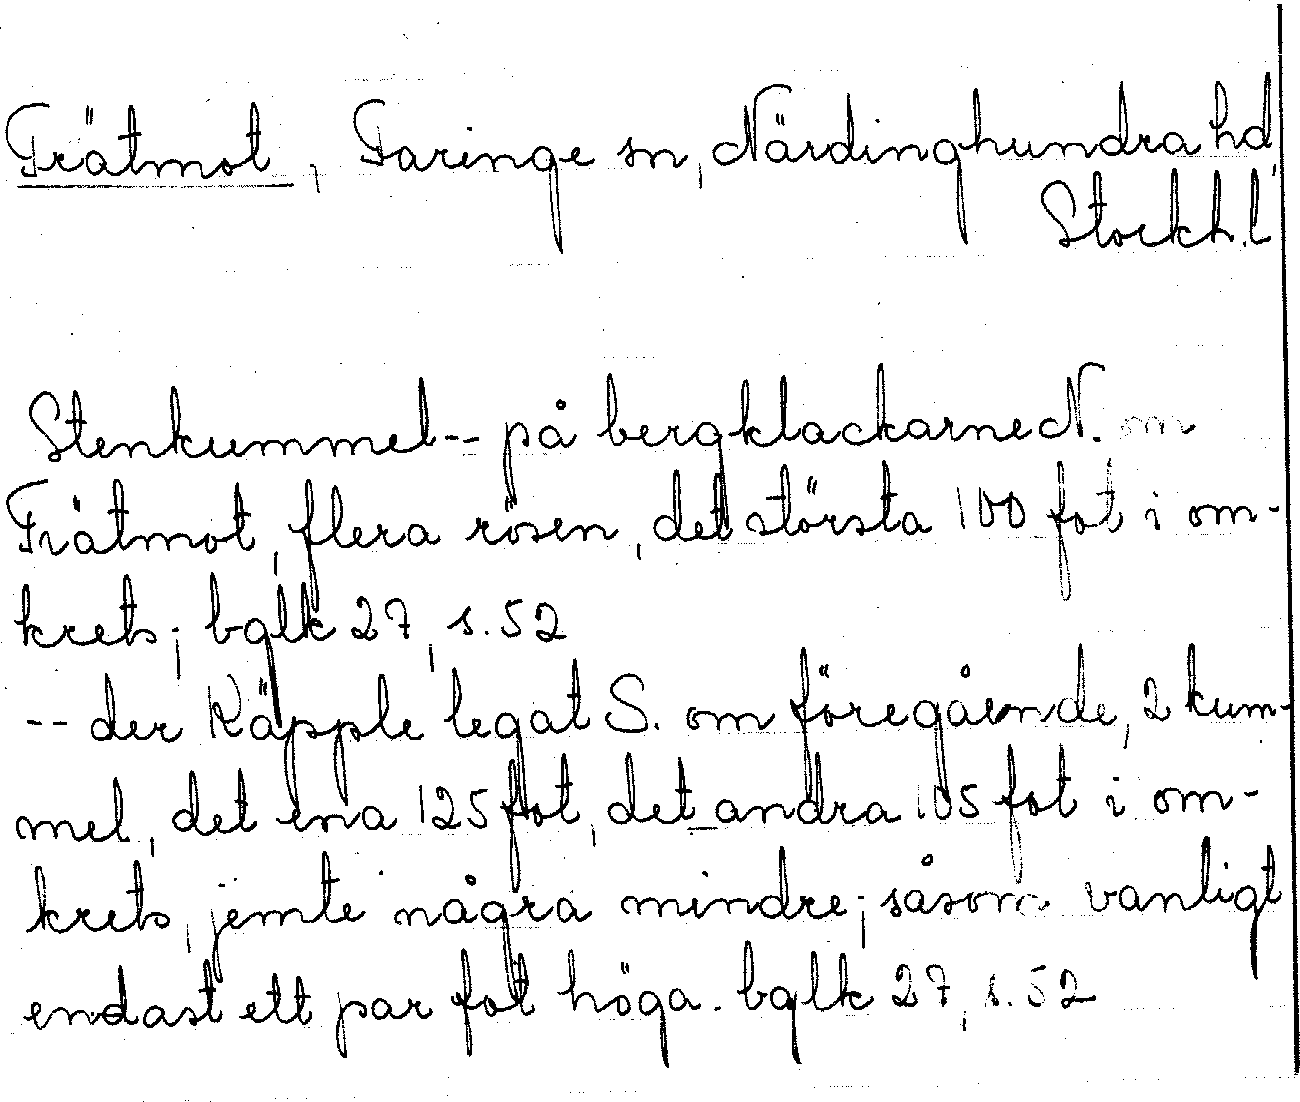 Trätmot, Faringe sn, Närdinghundra hd,
Stockh. l
Stenkummel -- på bergklackarne N. om
Trätmot, flera rösen, det största 100 fot i om-
krets; bglk 27, s. 52
-- der Käpple legat S. om föregående, 2 kum-
mel, det ena 125 fot, det andra 105 fot i om-
krets, jemte några mindre; såsom vanligt
endast ett par fot höga. bglk 27, s. 52